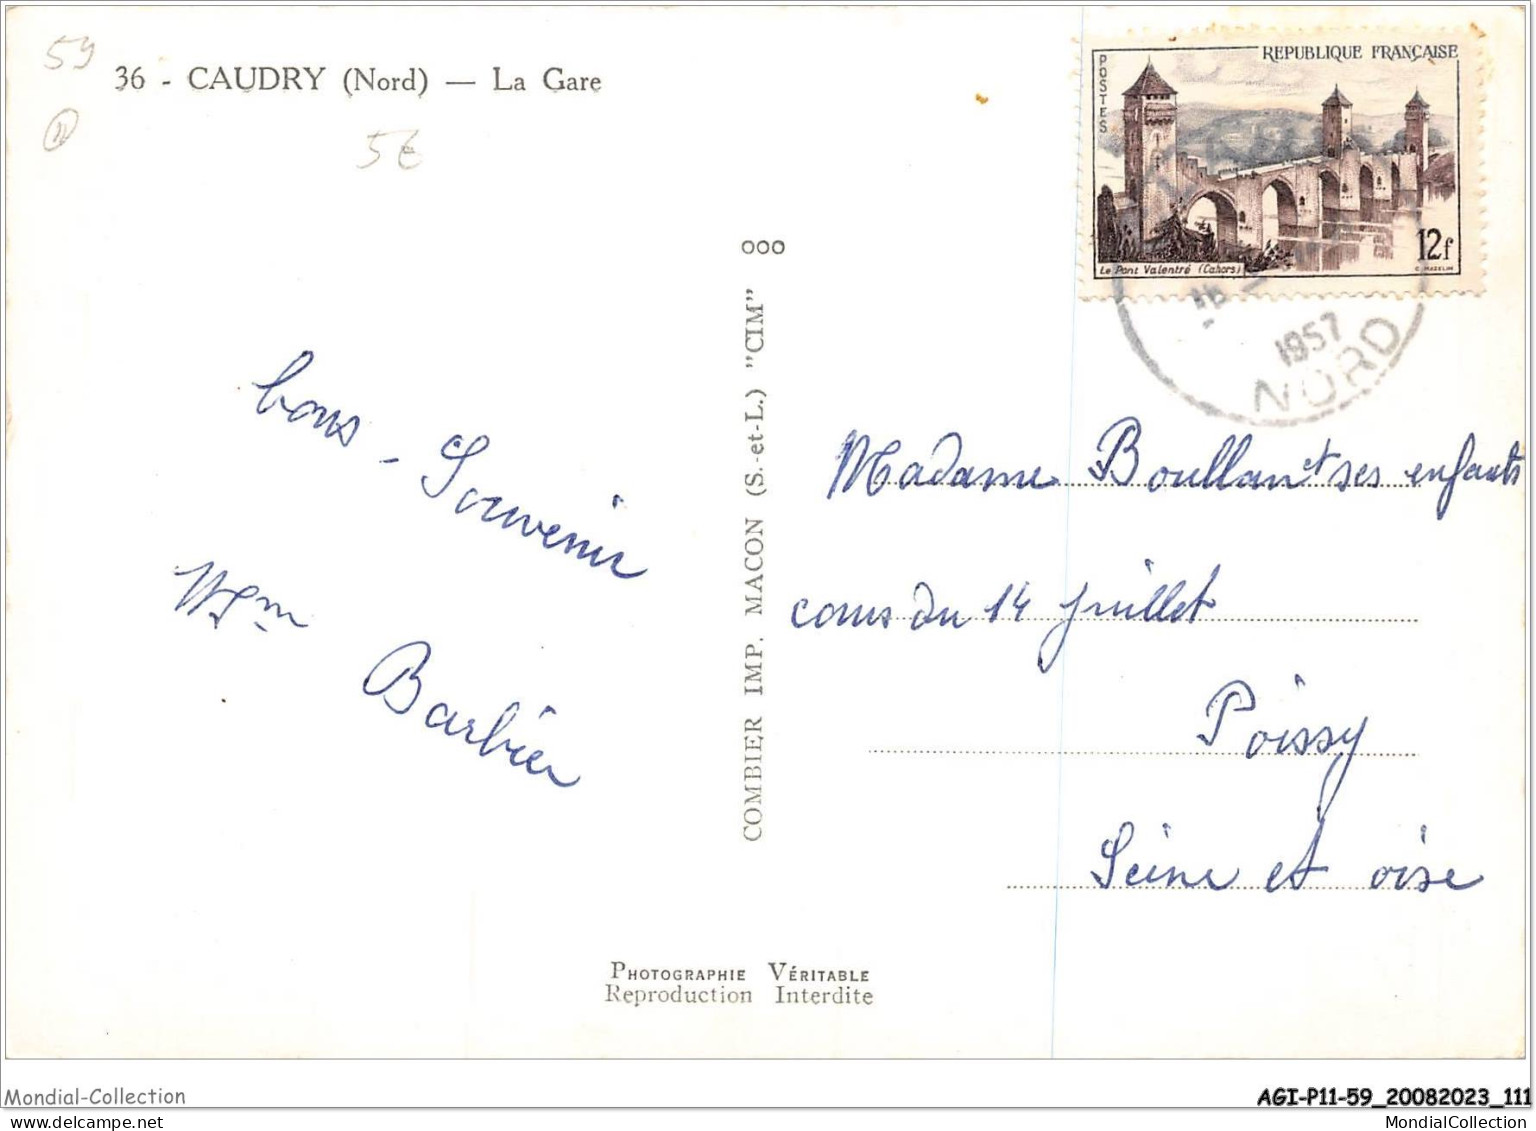 59
36 - CAUDRY (Nord) — La Gare
5€
REPUBLIQUE FRANÇAISE
POSTES
12f
Le Pont Valentré (Cahors)
1957
NORD
ooo
COMBIER IMP. MACON (S.-et-L.) "CIM"
bons - Souvenir
Barbier
Madame Boullan et ses enfants
cours du 14 juillet
Poissy
Seine et oise
PHOTOGRAPHIE VÉRITABLE
Reproduction Interdite
Mondial-Collection
AGI-P11-59_20082023_111
MondialCollection